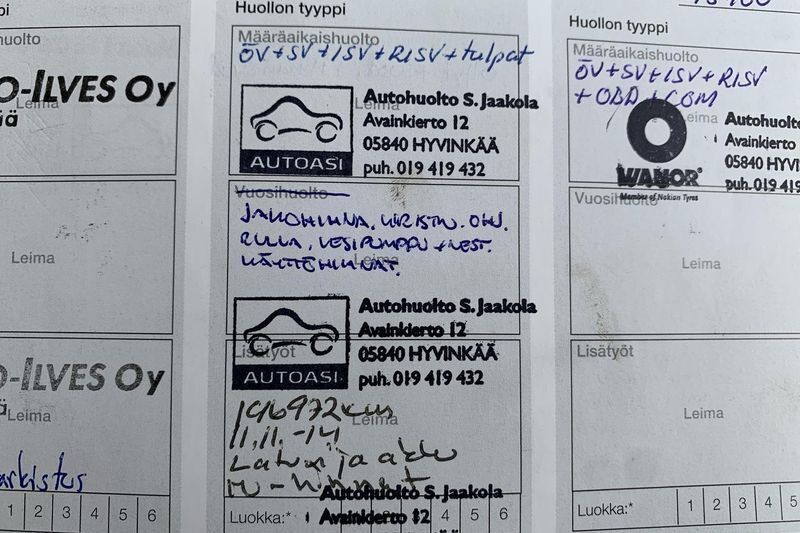 uolto
O-ILVES Oy
Leima
ä
Leima
O-ILVES Oy
ä
Leima
arkistus
1 2 3 4 5 6
Huollon tyyppi
Määräaikaishuolto
ÖV+SV+ISV+RISV+tulpat
Leima
AUTOASI
Autohuolto S. Jaakola
Avainkierto 12
05840 HYVINKÄÄ
puh. 019 419 432
Vuosihuolto
JAKOHIHNA, KIRISTIN. OHJ.
RULLA, VESIPUMPPU + NEST.
Leima
KÄYTTÖHIHNAT.
Lisätyöt
AUTOASI
Autohuolto S. Jaakola
Avainkierto 12
05840 HYVINKÄÄ
puh. 019 419 432
196972 km
Leima
11.11.-14
Laturi ja akku
Autohuolto S. Jaakola
Avainkierto 12
Luokka:* 4 5 6
Huollon tyyppi
Määräaikaishuolto
ÖV+SV+ISV+RISV
+OBD+COM
Leima
WANOR
Member of Nokian Tyres
Autohuolto
Avainkierto
05840 HY
puh. 019 419
Vuosihuolto
Leima
Lisätyöt
Leima
Luokka:* 1 2 3 4 5